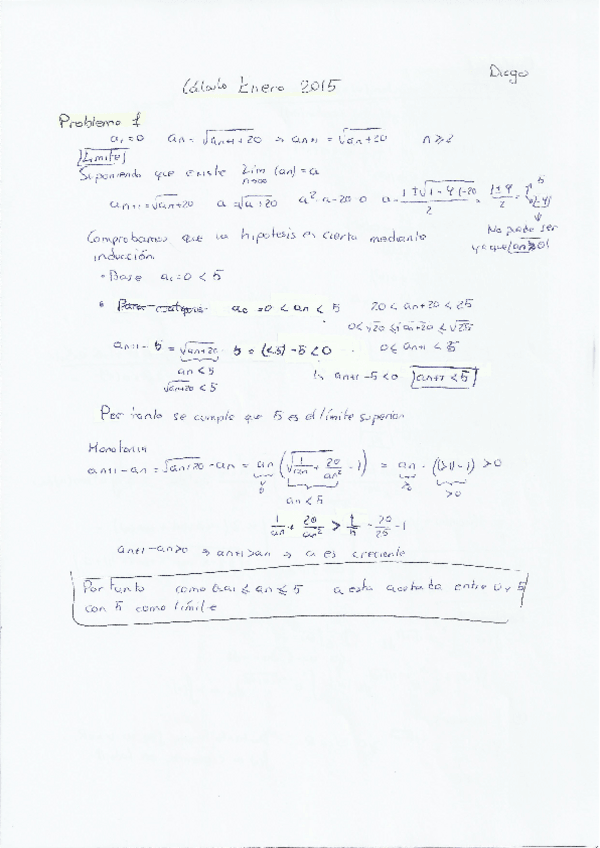 Diego
Cálculo Enero 2015
Problema 1
a₁=0 an = √(an-1+20) ⇒ an+1 = √(an+20) n≥2
[Límite]
Suponiendo que existe Lim n→∞ (an) = a
an+1 = √(an+20) a = √(a+20) a²-a-20=0 a = (1±√(1-4(-20)))/2 = (1±9)/2 = { 5
No puede ser
ya que (an≥0)
Comprobamos que la hipotesis es cierta mediante
inducción.
• Base a₁=0 < 5
• a₁=0 < an < 5 20 < an+20 < 25
0<√20 ≤ √(an+20) ≤ √25
an+1 - 5 = √(an+20)
an < 5
√(an+20) < 5
↳ an+1-5<0 [an+1 < 5]
Por tanto se cumple que 5 es el límite superior
Monotonía
an+1-an = √(an+20) - an = an (√(1/an + 20/an²) - 1) = an · (>1-1) > 0
an < 5
1/an + 20/an² > 1/5
an+1-an>0 ⇒ an+1>an ⇒ a es creciente
Por tanto como 0=a₁ ≤ an ≤ 5 a esta acotada entre 0 y 5
con 5 como límite